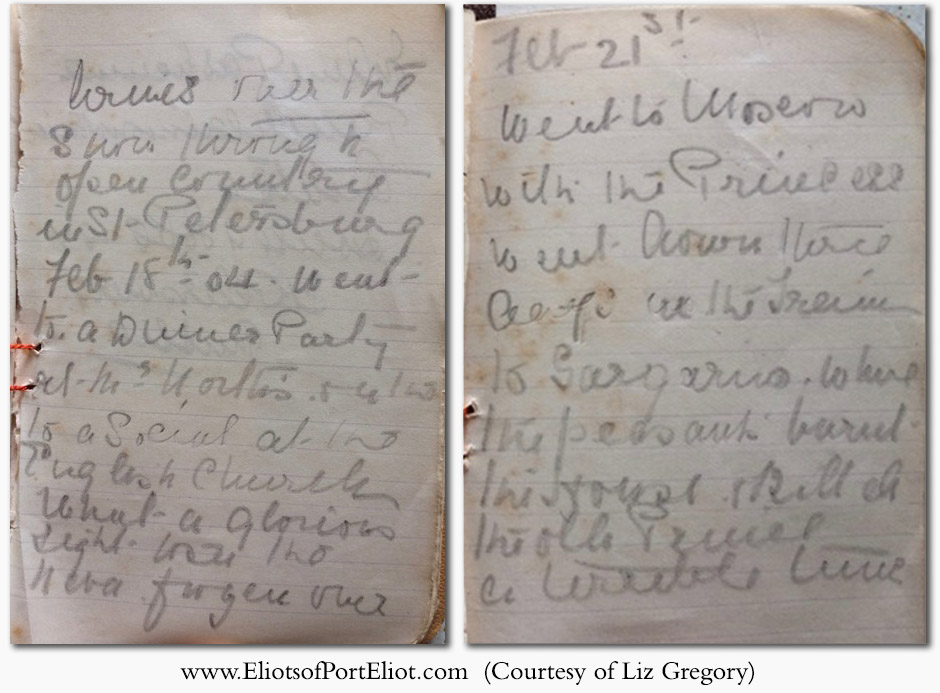 over the
Snow through
open country
in St Petersburg
Feb 18th 04. Went
to a Dinner Party
at Mrs
to a Social at the
English Church
What a glorious
sight was the
Neva frozen over
Feb 21st
Went to Moscow
with the Princess
went down three
days in the train
to where
the peasants burnt
the house & killed
the old Prince
a terrible time
www.EliotsofPortEliot.com (Courtesy of Liz Gregory)